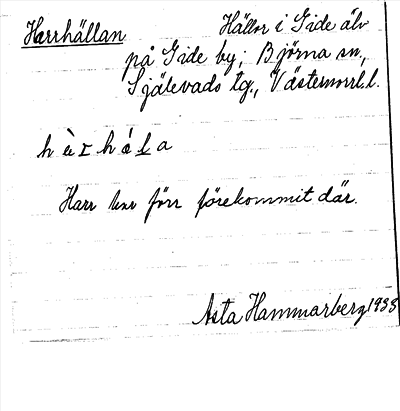 Harrhällan Hällor i Gide älv
på Gide by; Björna sn.,
Själevads tg., Västernorrl.l.
hèrhála
Harr har förr förekommit där.
Asta Hammarberg 1933